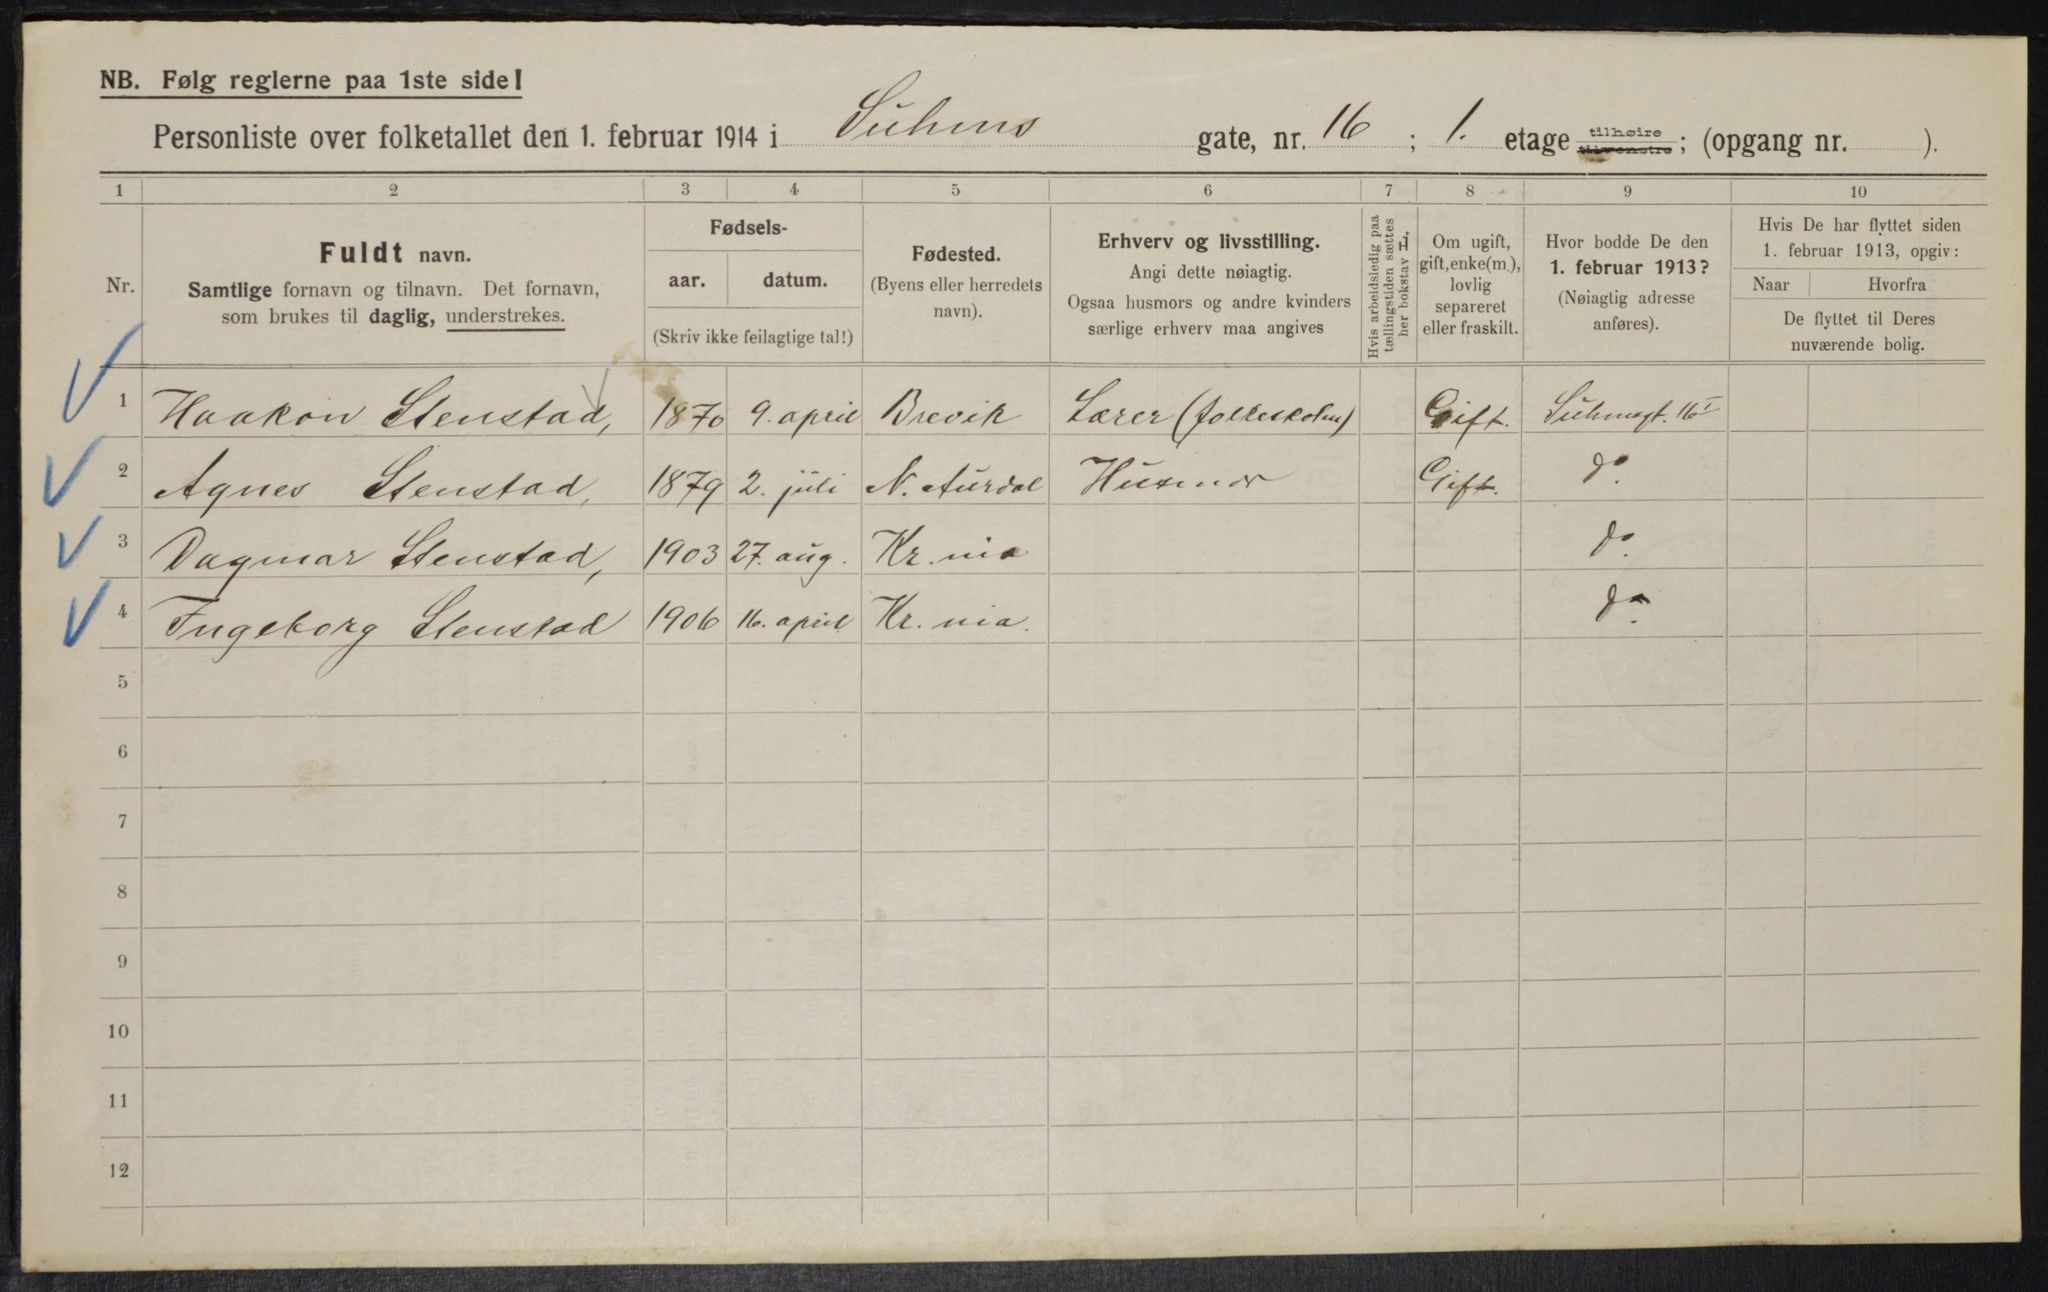 NB. Følg reglerne paa 1ste side!
Personliste over folketallet den 1. februar 1914 i Suhms gate, nr. 16 ; 1. etage tilhøire tilvenstre ; (opgang nr. ).
1 2 3 4 5 6 7 8 9 10
Nr.
Fuldt navn.
Samtlige fornavn og tilnavn. Det fornavn,
som brukes til daglig, understrekes.
Fødsels-
aar. datum.
(Skriv ikke feilagtige tal!)
Fødested.
(Byens eller herredets
navn).
Erhverv og livsstilling.
Angi dette nøiagtig.
Ogsaa husmors og andre kvinders
særlige erhverv maa angives
Hvis arbeidsledig paa
tællingstiden sættes
her bokstav L.
Om ugift,
gift, enke(m.),
lovlig
separeret
eller fraskilt.
Hvor bodde De den
1. februar 1913?
(Nøiagtig adresse
anføres).
Hvis De har flyttet siden
1. februar 1913, opgiv:
Naar Hvorfra
De flyttet til Deres
nuværende bolig.
1 Haakon Stenstad, 1870 9. april Brevik Lærer (folkeskolen) Gift. Suhmsgt. 16 I
2 Agnes Stenstad, 1879 2. juli N. Aurdal Husmor Gift. do.
3 Dagmar Stenstad, 1903 27. aug. Kr.nia do.
4 Ingeborg Stenstad 1906 16. april Kr.nia. do.
5
6
7
8
9
10
11
12